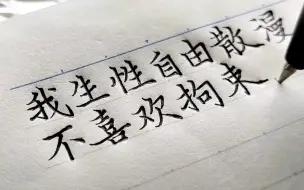 我生性自由散漫
不喜欢拘束